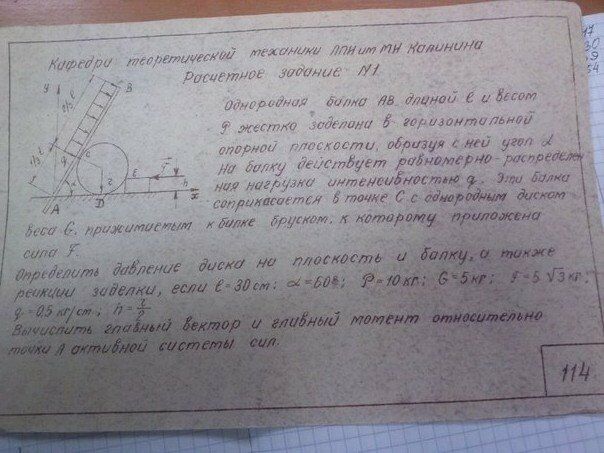 Кафедра теоретической механики ЛПИ им МИ Калинина
Расчетное задание N1.
Однородная балка AB длиной l и весом
жестко заделана в горизонтальной
опорной плоскости, образуя с ней угол α
На балку действует равномерно-распределен
ная нагрузка интенсивностью q. Эти балка
соприкасается в точке C с однородным диском
веса G, прижимаемым к балке бруском, к которому приложена
сила F.
Определить давление диска на плоскость и балку, а также
реакции заделки, если l=30cm; α=60°; P=10кг; G=5кг;
q=0,5 кг/cm; h=r/2
Вычислить главный вектор и главный момент относительно
точки A активной системы сил.
114
y
B
C
A
D
E
h
x